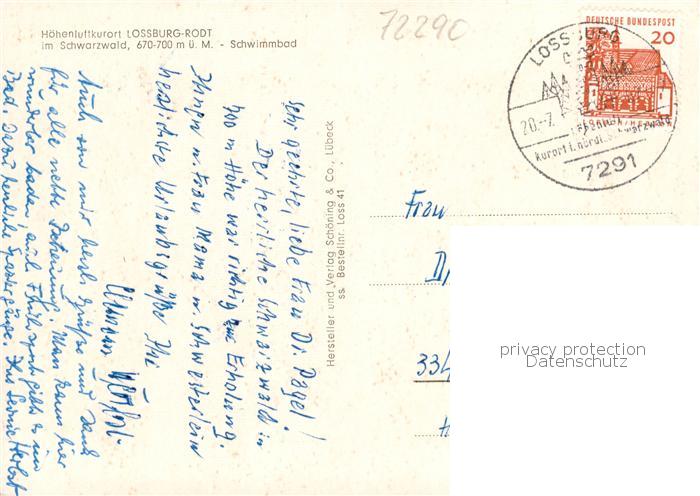 Höhenluftkurort LOSSBURG-RODT
im Schwarzwald, 670-700 m ü. M. - Schwimmbad
72290
DEUTSCHE BUNDESPOST
20
LOSSBURG
20.-7.
kurort i. nördl. Schwarzwald
7291
Sehr geehrte, liebe Frau Dr. Pagel!
Der herrliche Schwarzwald in
700 m Höhe war richtig zur Erholung.
Ihnen u. Frau Mama u. Schwesterlein
herzliche Urlaubsgrüße Ihr
Auch von mir herzl. Grüße und Dank
für alle nette Betreuung. Man kann hier
wunderbar baden auch
Bad. Dazu herrliche Spaziergänge. Ihre Herbst
Hersteller und Verlag Schöning & Co., Lübeck
ss. Bestellnr. Loss 41
Frau
334
privacy protection
Datenschutz